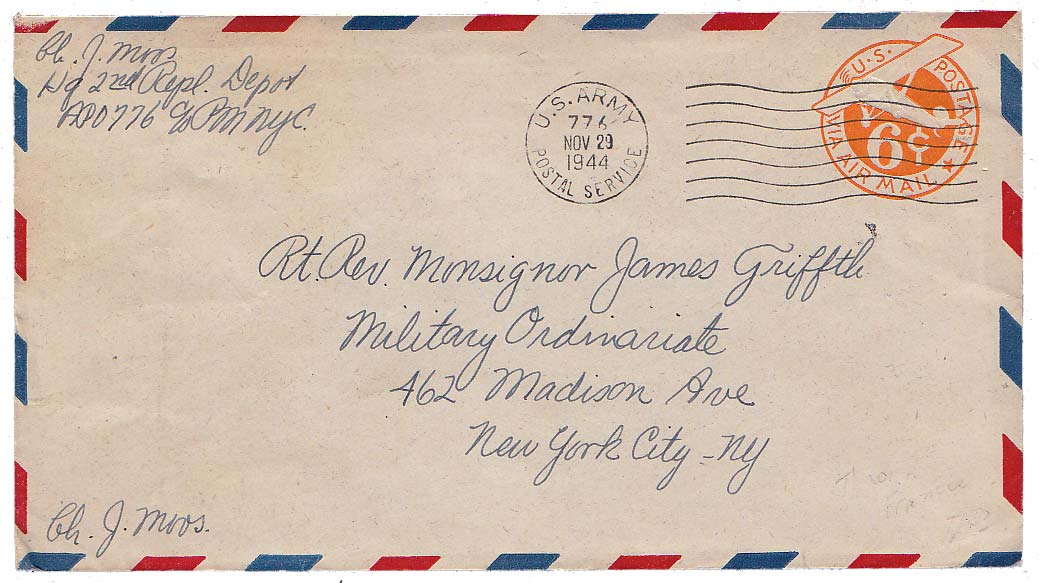 Ch. J. Moos
Hq 2nd Repl. Depot
APO 776 c/o PM NYC.
U.S. ARMY
776
NOV 29
1944
POSTAL SERVICE
U.S. POSTAGE
6¢
VIA AIR MAIL
Rt. Rev. Monsignor James Griffith
Military Ordinariate
462 Madison Ave
New York City - NY
Ch. J. Moos.